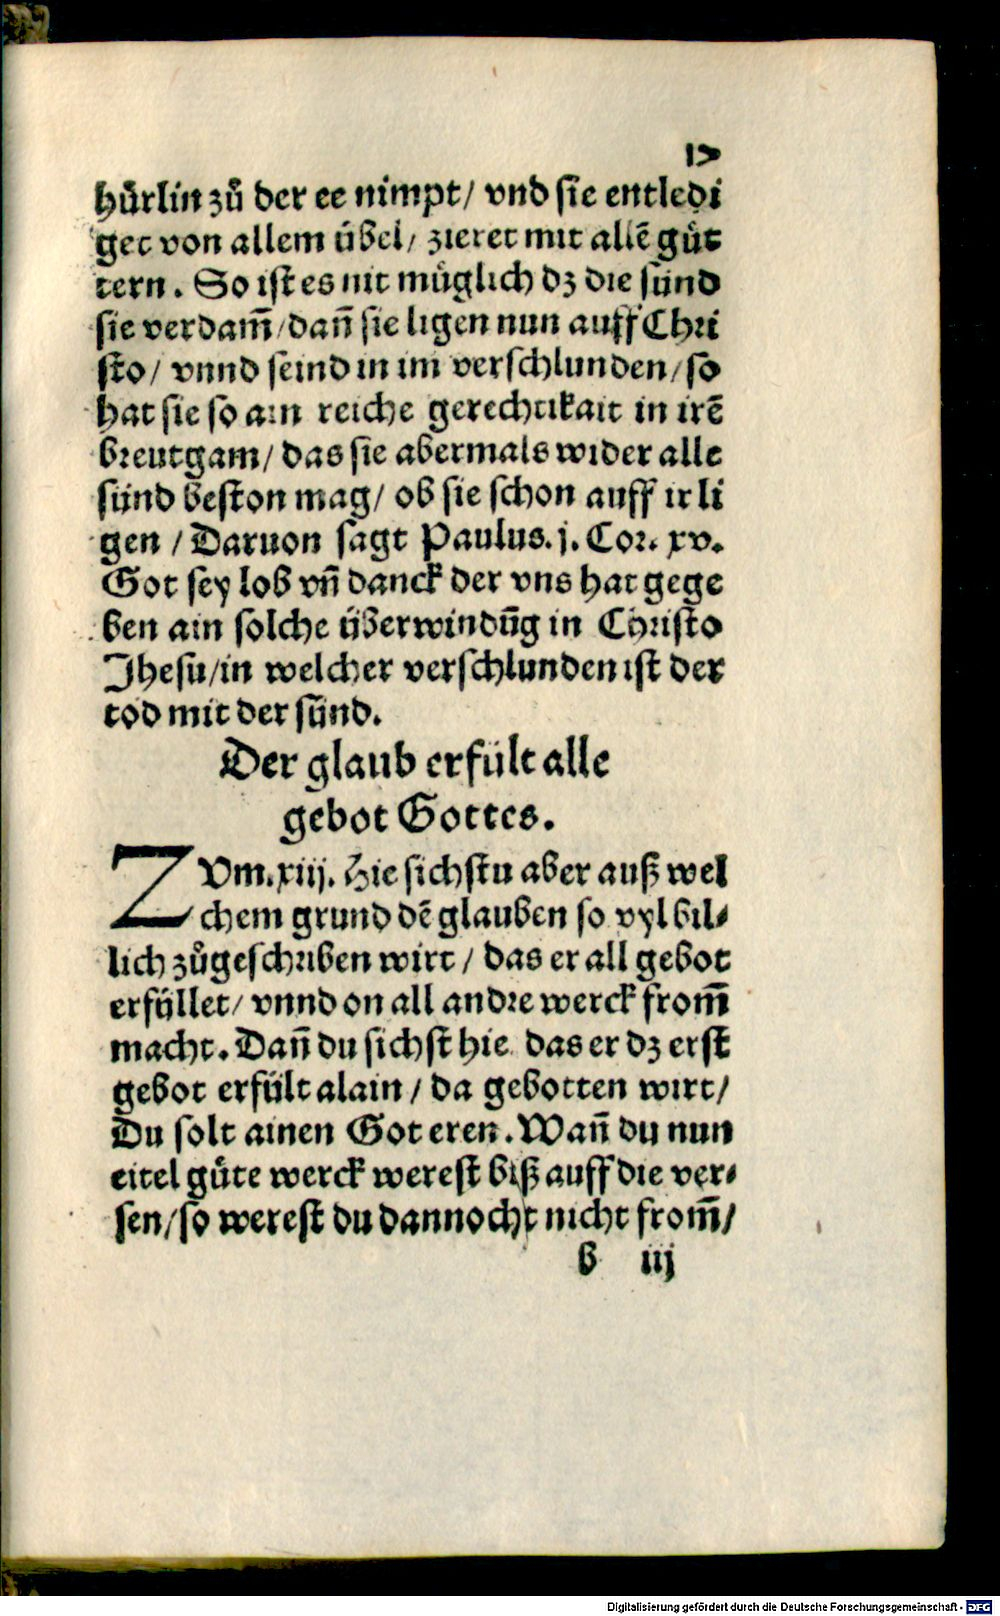 17
hůrlin zů der ee nimpt/ vnd sie entledi
get von allem übel/ zieret mit allē gůt
tern. So ist es nit müglich dz die sünd
sie verdam̄/dan̄ sie ligen nun auff Chri
sto/ vnnd seind in im verschlunden/so
hat sie so ain reiche gerechtikait in irē
breutgam/ das sie abermals wider alle
sünd beston mag/ ob sie schon auff ir li
gen / Daruon sagt Paulus. j. Cor. xv.
Got sey lob vn̄ danck der vns hat gege
ben ain solche überwindūg in Christo
Jhesu/in welcher verschlunden ist der
tod mit der sünd.
Der glaub erfült alle
gebot Gottes.
ZVm.xiij. Hie sichstu aber auß wel
chem grund dē glauben so vyl bil⸗
lich zůgeschriben wirt / das er all gebot
erfüllet/ vnnd on all andre werck from̄
macht. Dan̄ du sichst hie das er dz erst
gebot erfült alain / da gebotten wirt/
Du solt ainen Got eren. Wan̄ du nun
eitel gůte werck werest biß auff die ver⸗
sen/so werest du dannocht nicht from̄/
b iij
Digitalisierung gefördert durch die Deutsche Forschungsgemeinschaft - DFG